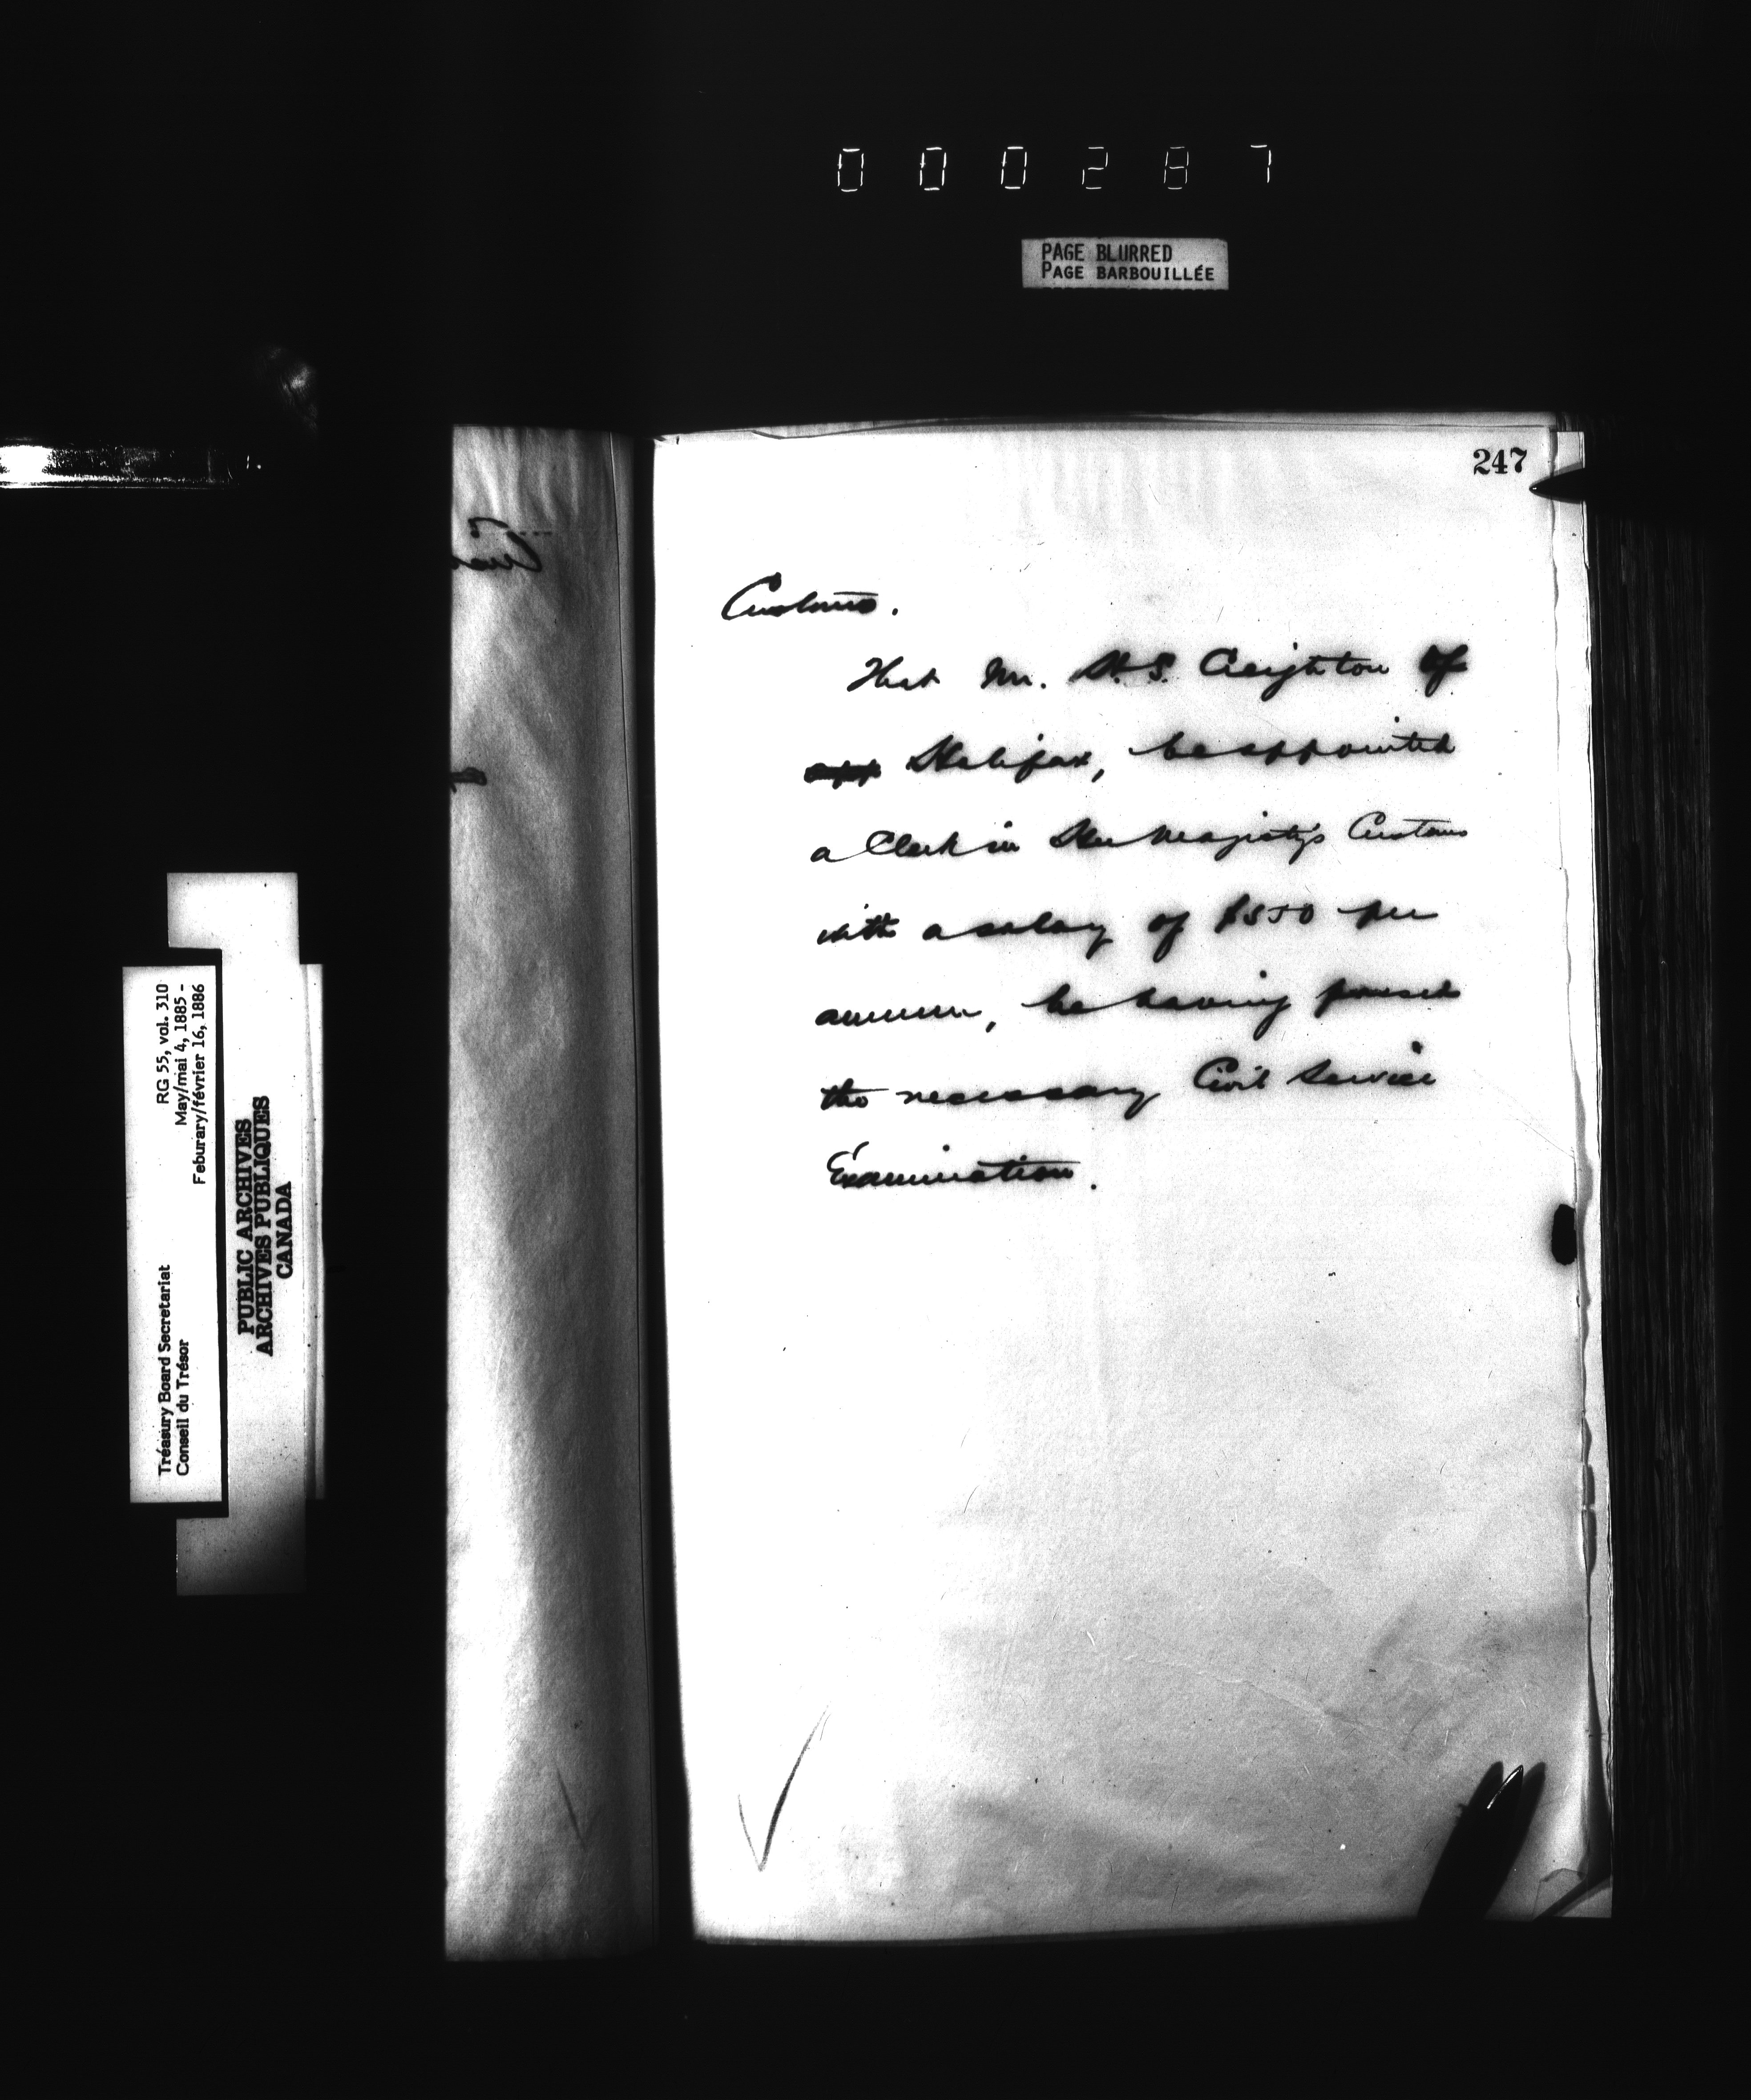 000287
PAGE BLURRED
PAGE BARBOUILLÉE
247
Customs.
That Mr. H. S. Creighton of
Halifax, be appointed
a Clerk in Her Majesty's Customs
with a salary of $550 per
annum, he having passed
the necessary Civil Service
Examination.
RG 55, vol. 310
May/mai 4, 1885 -
Feburary/février 16, 1886
Tréasury Board Secretariat
Conseil du Trésor
PUBLIC ARCHIVES
ARCHIVES PUBLIQUES
CANADA